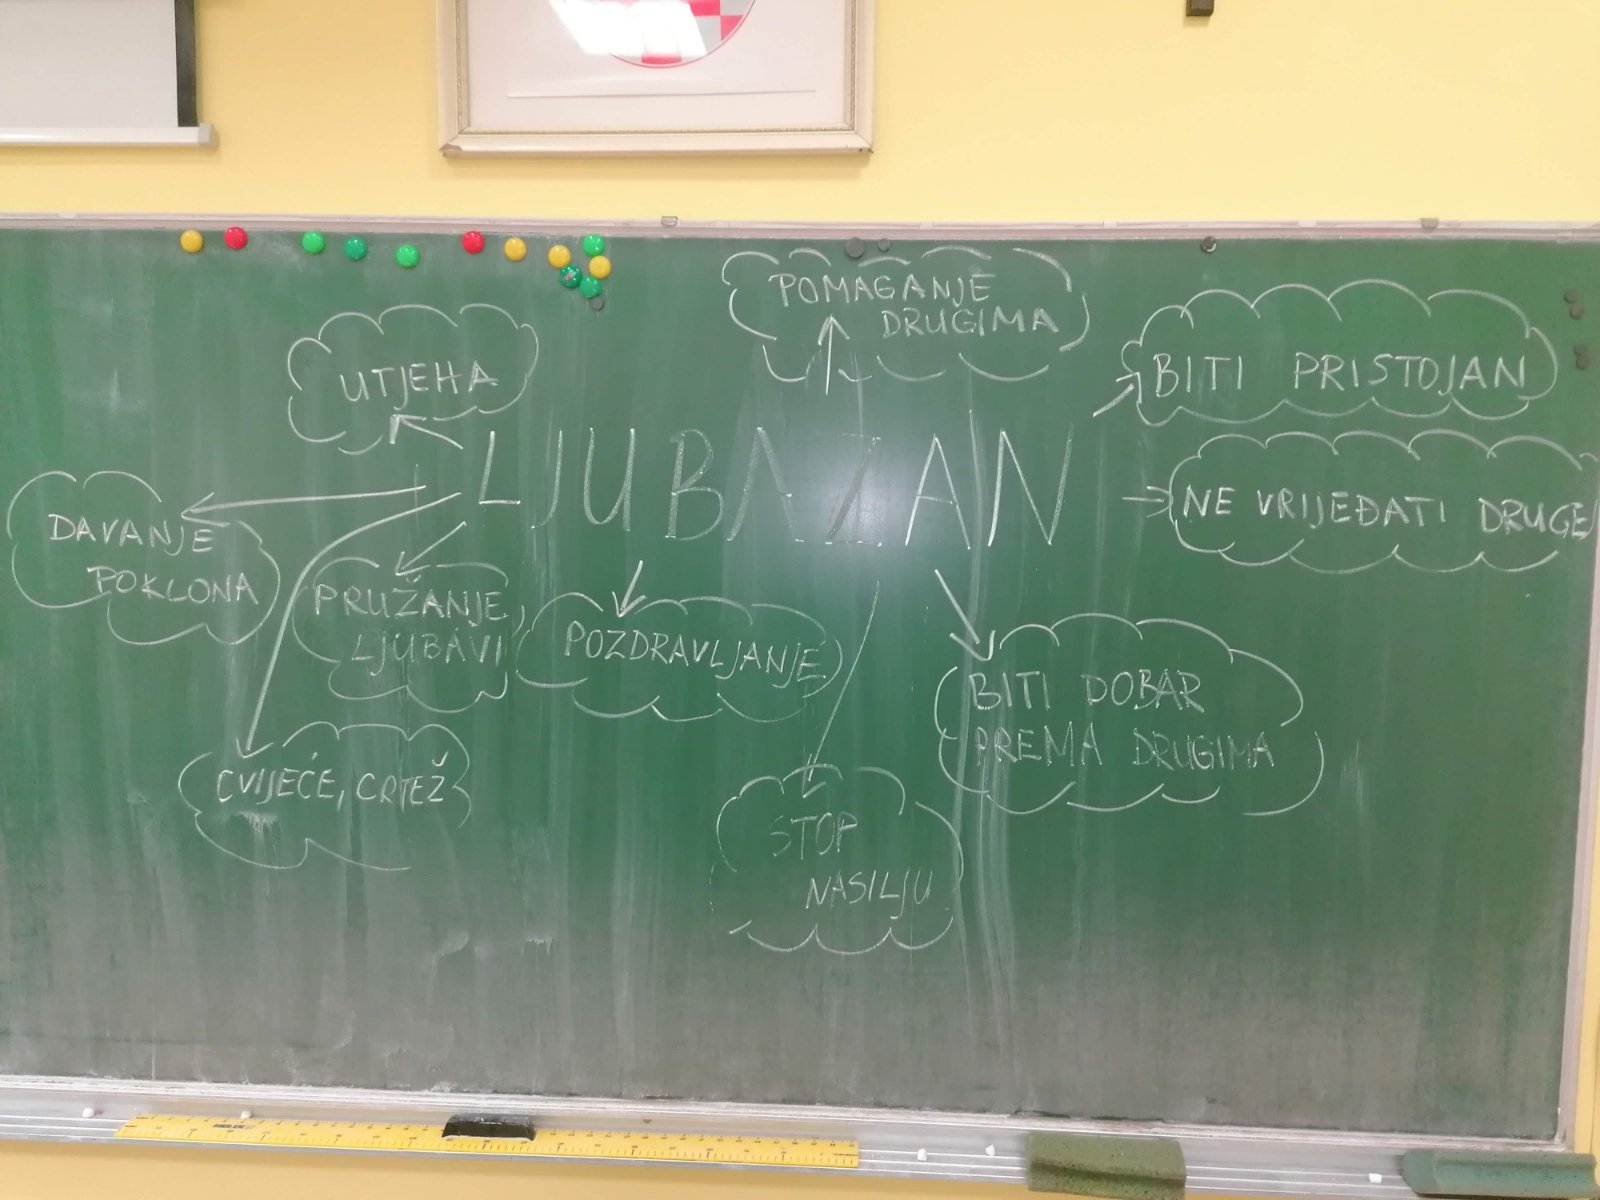 POMAGANJE
DRUGIMA
UTJEHA
BITI PRISTOJAN
LJUBAZAN
DAVANJE
POKLONA
NE VRIJEĐATI DRUGE
PRUŽANJE
LJUBAVI
POZDRAVLJANJE
BITI DOBAR
PREMA DRUGIMA
CVIJEĆE, CRTEŽ
STOP
NASILJU